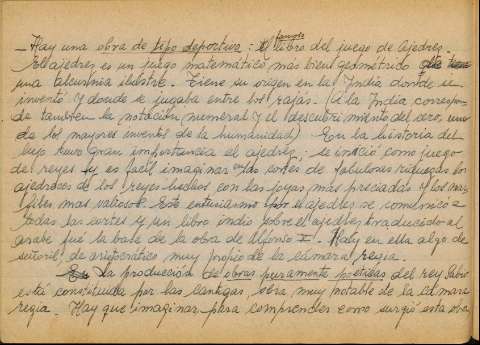 famoso
- Hay una obra de tipo deportivo: el libro del juego de Ajedrez.
El ajedres es un juego matemático, más bien geometrido que tiene
una alcurnia ilustre. Tiene su origen en la India donde se
inventó y donde se jugaba entre los rajás. (a la India correspon-
de tambien la notación numeral y el descubrimiento del cero, uno
de los mayores inventos de la humanidad) En la historia del
lujo tuvo gran importancia el ajedrez; se inició como juego
de reyes y es facil imaginar en las cortes de fabulosas riquezas los
ajedreces de los reyes hechos con las joyas más preciadas y los mar-
files mas valiosos. Este entusiasmo por el ajedres se comunicó a
todas las cortes y un libro indio sobre el ajedres traducido al
arabe fué la base de la obra de Alfonso X. Hay en ella algo de
señoril, de aristocrático muy propio de la cámara regia.
La producción de obras puramente poéticas del rey Sabio
está constituida por las cantigas, obra muy notable de la cámara
regia. Hay que imaginar para comprender como surgió esta obra